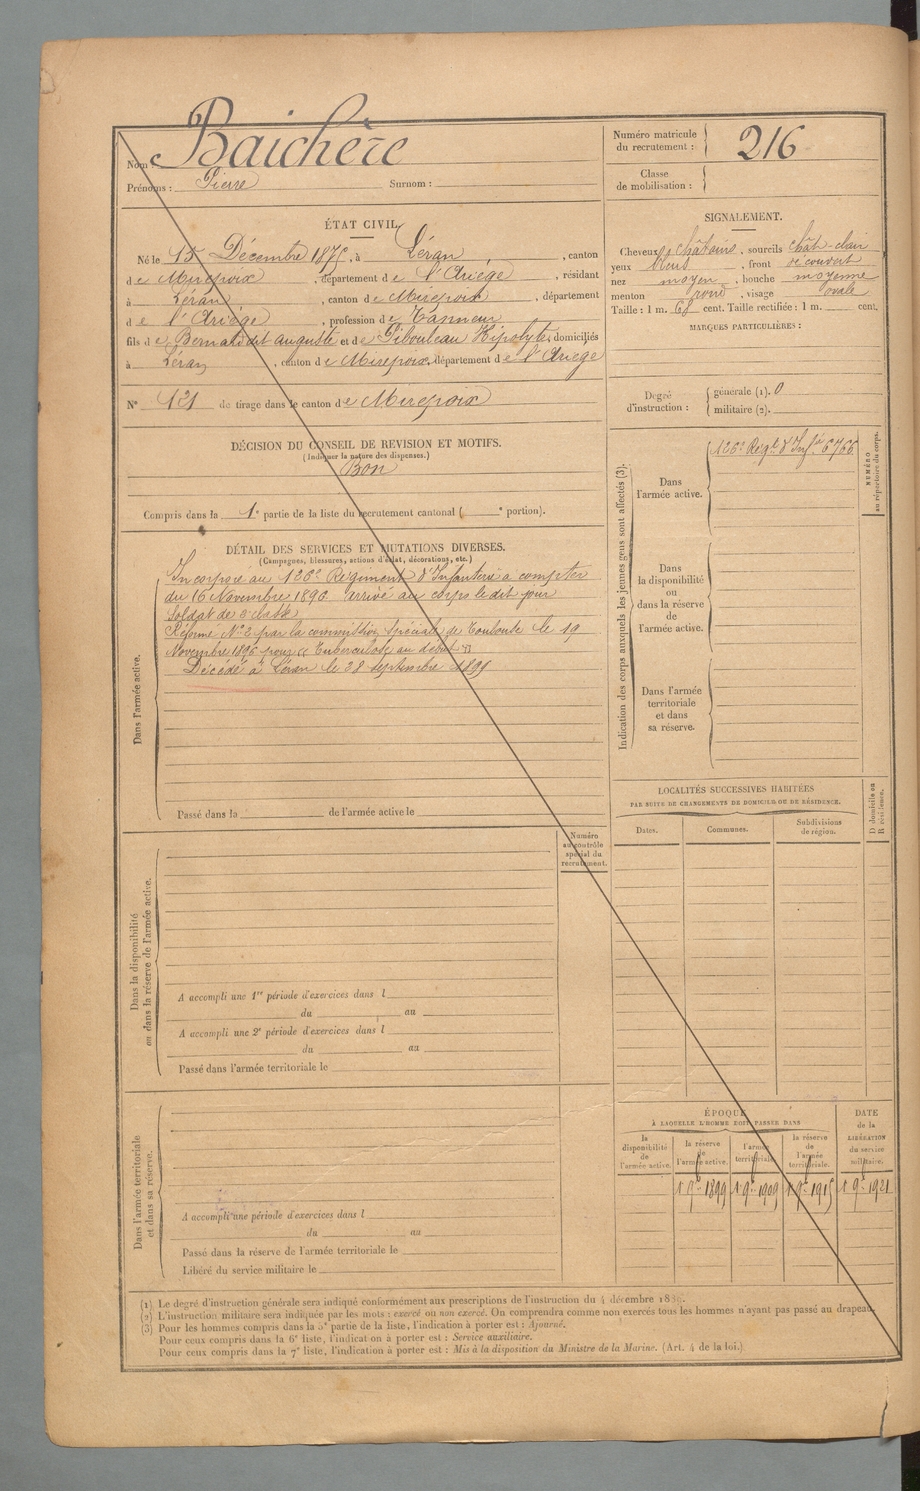 Nom Baichère
Prénoms : Pierre Surnom :
Numéro matricule
du recrutement : 216
Classe
de mobilisation :
ÉTAT CIVIL.
Né le 15 Décembre 1875, à Léran, canton
de Mirepoix, département de l'Ariège, résidant
à Léran, canton de Mirepoix, département
de l'Ariège, profession de Tanneur
fils de Bernard dit auguste et de Sibouleau Hipolyte, domiciliés
à Léran, canton de Mirepoix, département de l'Ariège
N° 131 de tirage dans le canton de Mirepoix
DÉCISION DU CONSEIL DE REVISION ET MOTIFS.
(Indiquer la nature des dispenses.)
Bon
Compris dans la 1e partie de la liste du recrutement cantonal ( e portion).
SIGNALEMENT.
Cheveux châtains, sourcils chât-clair
yeux bleus, front découvert
nez moyen, bouche moyenne
menton rond, visage ovale
Taille : 1 m. 68 cent. Taille rectifiée : 1 m. cent.
MARQUES PARTICULIÈRES :
Degré
d'instruction :
générale (1). 0
militaire (2).
DÉTAIL DES SERVICES ET MUTATIONS DIVERSES.
(Campagnes, blessures, actions d'éclat, décorations, etc.)
Dans l'armée active.
Incorporé au 126e Régiment d'Infanterie à compter
du 16 Novembre 1896 arrivé au corps le dit jour
Soldat de 2e classe
Réformé No 2 par la commission Spéciale de Toulouse le 19
Novembre 1896 pour « Tuberculose au début »
Décédé à Léran le 28 septembre 1899
Passé dans la de l'armée active le
Indication des corps auxquels les jeunes gens sont affectés (3).
Dans
l'armée active.
126e Régt d'Infie 6766
NUMÉRO
au répertoire du corps.
Dans
la disponibilité
ou
dans la réserve
de
l'armée active.
Dans l'armée
territoriale
et dans
sa réserve.
LOCALITÉS SUCCESSIVES HABITÉES
PAR SUITE DE CHANGEMENTS DE DOMICILE OU DE RÉSIDENCE.
D domicile ou
R résidence.
Dates.
Communes.
Subdivisions
de région.
Numéro
au contrôle
spécial du
recrutement.
Dans la disponibilité
ou dans la réserve de l'armée active.
A accompli une 1re période d'exercices dans l
du au
A accompli une 2e période d'exercices dans l
du au
Passé dans l'armée territoriale le
Dans l'armée territoriale
et dans sa réserve.
A accompli une période d'exercices dans l
du au
Passé dans la réserve de l'armée territoriale le
Libéré du service militaire le
ÉPOQUE
À LAQUELLE L'HOMME DOIT PASSER DANS
la
disponibilité
de
l'armée active.
la réserve
de
l'armée active.
l'armée
territoriale.
la réserve
de
l'armée
territoriale.
DATE
de la
LIBÉRATION
du service
militaire.
1 9bre 1899 1 9bre 1909 1 9bre 1915 1 9bre 1921
(1) Le degré d'instruction générale sera indiqué conformément aux prescriptions de l'instruction du 4 décembre 1889.
(2) L'instruction militaire sera indiquée par les mots : exercé ou non exercé. On comprendra comme non exercés tous les hommes n'ayant pas passé au drapeau.
(3) Pour les hommes compris dans la 5e partie de la liste, l'indication à porter est : Ajourné.
Pour ceux compris dans la 6e liste, l'indication à porter est : Service auxiliaire.
Pour ceux compris dans la 7e liste, l'indication à porter est : Mis à la disposition du Ministre de la Marine. (Art. 4 de la loi.)